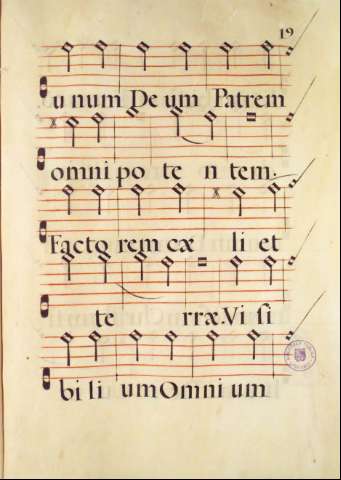 19
u num De um Patrem
omni po te n tem.
Facto rem cæ li et
te rræ. Vi ſi
bi li um Omni um